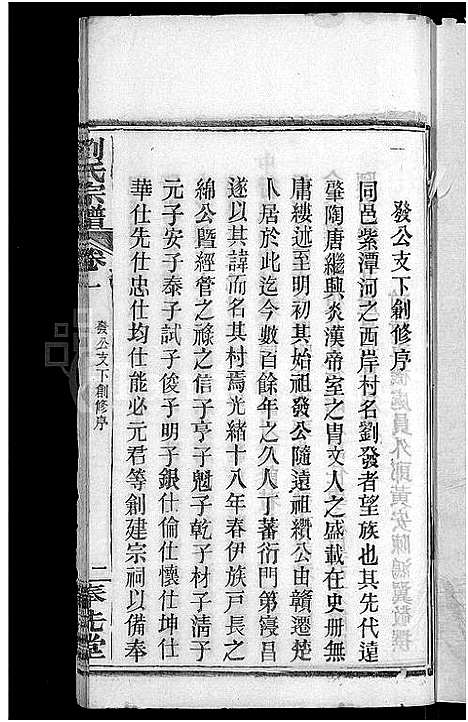 發公支下創修序
同邑紫潭河之西岸村名劉發者望族也其先代遠
肇陶唐繼興炎漢帝室之胄文人之盛載在史册無
庸縷述至明初其始祖發公隨遠祖纘公由贛遷楚
卜居於此迄今數百餘年之久人丁蕃衍門第寖昌
遂以其諱而名其村焉光緒十八年春伊族戶長之
綿公暨經管之祿之信子亨子魁子乾子材子清子
元子安子泰子試子俊子明子銀仕倫仕懷仕坤仕
華仕先仕忠仕均仕能必元君等創建宗祠以備奉
劉氏宗譜
卷一
發公支下創修序
二
奉先堂